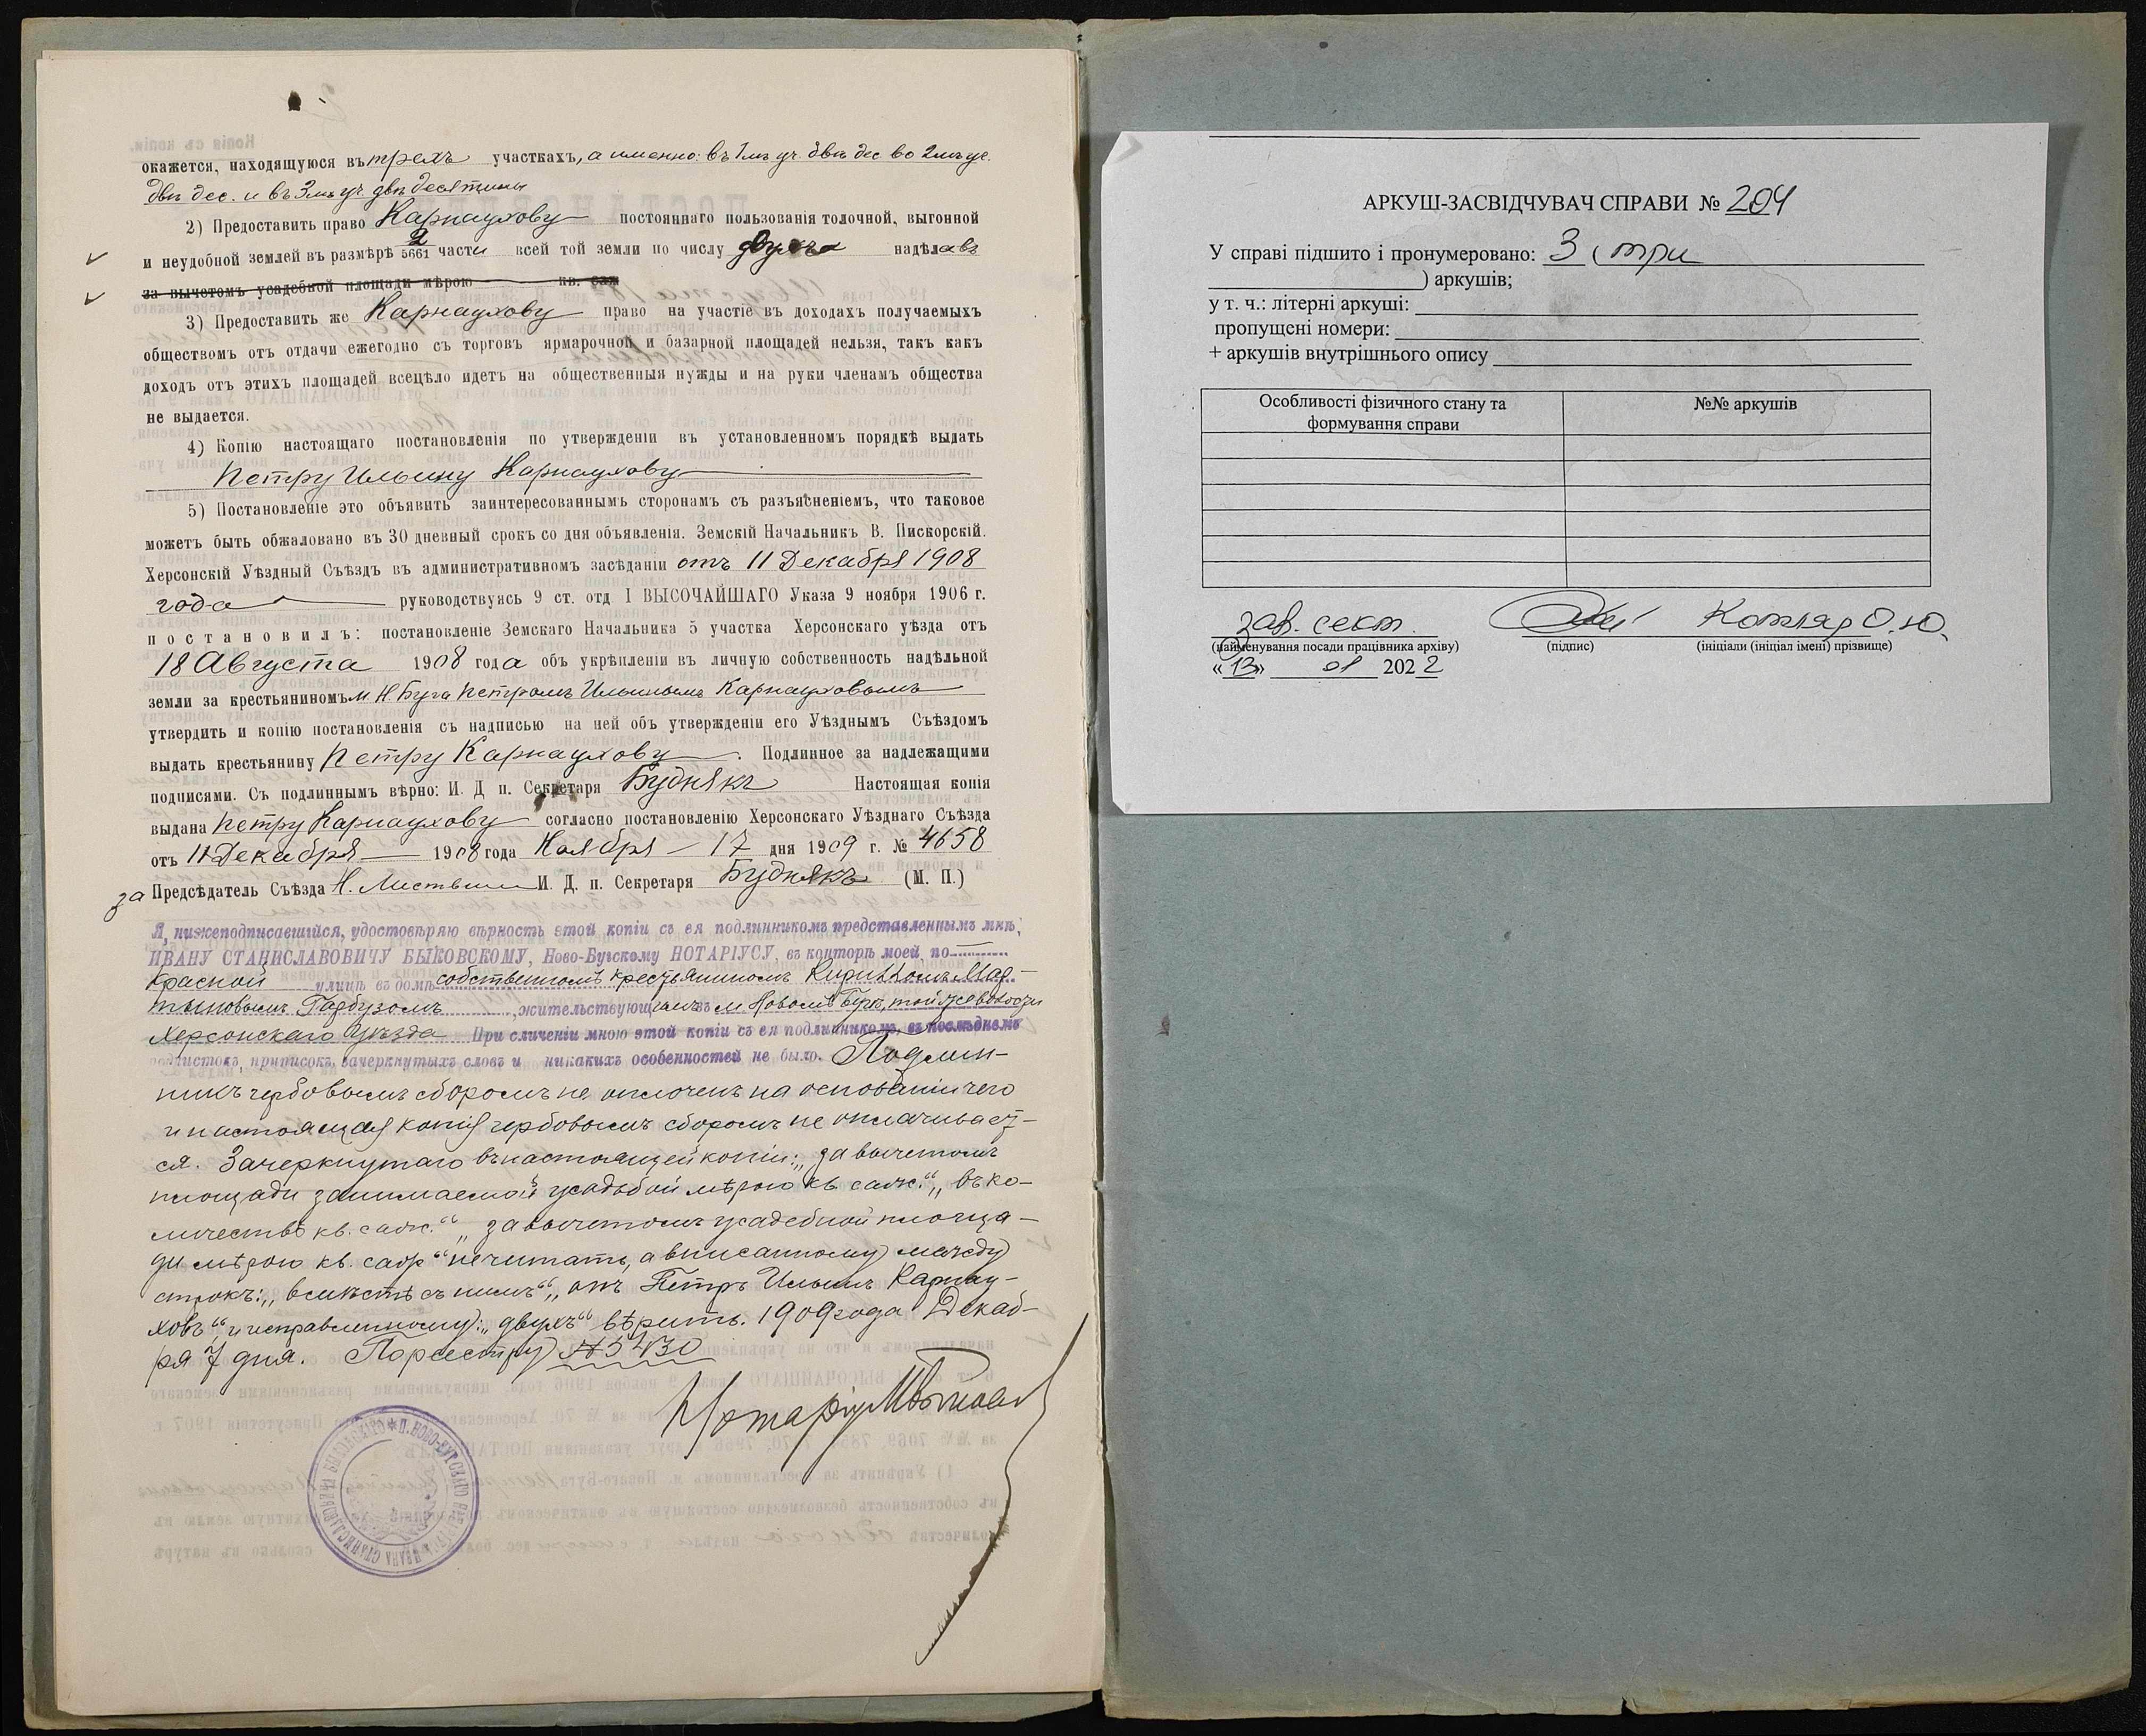 окажется, находящуюся въ трехъ участкахъ, а именно: въ 1мъ уч. двѣ дес во 2мъ уч.
двѣ дес. и въ 3мъ уч. двѣ десятины
2) Предоставить право Карнаухову постояннаго пользованія толочной, выгонной
и неудобной землей въ размѣрѣ 2/5661 части всей той земли по числу двухъ надѣловъ
за вычетомъ усадебной площади мѣрою кв. саж
3) Предоставить же Карнаухову право на участіе въ доходахъ получаемыхъ
обществомъ отъ отдачи ежегодно съ торговъ ярмарочной и базарной площадей нельзя, такъ какъ
доходъ отъ этихъ площадей всецѣло идетъ на общественныя нужды и на руки членамъ общества
не выдается.
4) Копію настоящаго постановленія по утвержденіи въ установленномъ порядкѣ выдать
Петру Ильину Карнаухову
5) Постановленіе это объявить заинтересованнымъ сторонамъ съ разъясненіемъ, что таковое
можетъ быть обжаловано въ 30 дневный срокъ со дня объявленія. Земскій Начальникъ В. Пискорскій.
Херсонскій Уѣздный Съѣздъ въ административномъ засѣданіи отъ 11 Декабря 1908
года руководствуясь 9 ст. отд I ВЫСОЧАЙШАГО Указа 9 ноября 1906 г.
постановилъ: постановленіе Земскаго Начальника 5 участка Херсонскаго уѣзда отъ
18 Августа 1908 года объ укрѣпленіи въ личную собственность надѣльной
земли за крестьяниномъ м Н. Буга Петромъ Ильинымъ Карнауховымъ
утвердить и копію постановленія съ надписью на ней объ утвержденіи его Уѣзднымъ Съѣздомъ
выдать крестьянину Петру Карнаухову. Подлинное за надлежащими
подписями. Съ подлиннымъ вѣрно: И. Д п. Секретаря Буднякъ Настоящая копія
выдана Петру Карнаухову согласно постановленію Херсонскаго Уѣзднаго Съѣзда
отъ 11 Декабря 1908 года Ноября 17 дня 1909 г. № 4658
за Предсѣдатель Съѣзда Н. И. Д. п. Секретаря Буднякъ (М. П.)
Я, нижеподписавшійся, удостовѣряю вѣрность этой копіи съ ея подлинникомъ представленнымъ мнѣ,
ИВАНУ СТАНИСЛАВОВИЧУ БЫКОВСКОМУ, Ново-Бугскому НОТАРІУСУ, въ конторѣ моей, по
Красной улицѣ въ домѣ собственномъ крестьяниномъ Кирилломъ Мар-
тыновымъ Гарбузомъ, жительствующимъ въ м Новомъ Бугѣ, той же волости
Херсонскаго Уѣзда При сличеніи мною этой копіи съ ея подлинникомъ, въ послѣднемъ
подчистокъ, приписокъ, зачеркнутыхъ словъ и никакихъ особенностей не было. Подлин-
никъ гербовымъ сборомъ не оплоченъ на основаніи чего
и настоящая копія гербовымъ сборомъ не оплачивает-
ся. Зачеркнутаго въ настоящей копіи: „за вычетомъ
площади занимаемой усадьбой мѣрою кв. саж.“ „въ ко-
личествѣ кв. саж.“ „за вычетомъ усадебной площа-
ди мѣрою кв. саж“ не читать, а вписанному между
строкъ: „вмѣстѣ съ нимъ“ „онъ Петръ Ильинъ Карнау-
ховъ“ и исправленному: „двухъ“ вѣрить. 1909 года Декаб-
ря 7 дня. По реестру № 5430
Нотаріусъ
АРКУШ-ЗАСВІДЧУВАЧ СПРАВИ № 204
У справі підшито і пронумеровано: 3 (три
) аркушів;
у т. ч.: літерні аркуші:
пропущені номери:
+ аркушів внутрішнього опису
Особливості фізичного стану та формування справи
№№ аркушів
зав. сект. Котляр О.Ю.
(найменування посади працівника архіву) (підпис) (ініціали (ініціал імені) прізвище)
«13» 01 2022